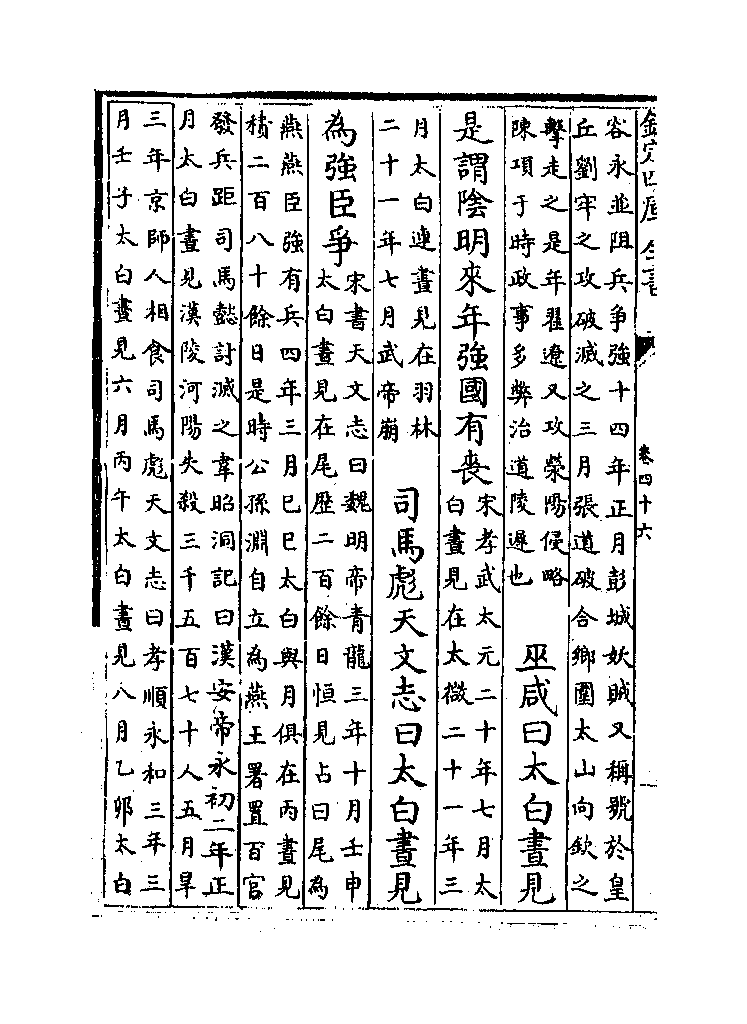 欽定四庫全書
卷四十六
谷永並阻兵爭強十四年正月彭城妖賊又稱號於皇
丘劉牢之攻破滅之三月張道破合鄉圍太山向欽之
擊走之是年翟遼又攻滎陽侵略
陳項于時政事多弊治道陵遲也
巫咸曰太白晝見
是謂陰明來年強國有喪
宋孝武太元二十年七月太
白晝見在太微二十一年三
月太白連晝見在羽林
二十一年七月武帝崩
司馬彪天文志曰太白晝見
為強臣爭
宋書天文志曰魏明帝青龍三年十月壬申
太白晝見在尾歷二百餘日恒見占曰尾為
燕燕臣強有兵四年三月已巳太白與月俱在丙晝見
積二百八十餘日是時公孫淵自立為燕王署置百官
發兵距司馬懿討滅之韋昭洞記曰漢安帝永初二年正
月太白晝見漢陵河陽失殺三千五百七十人五月旱
三年京師人相食司馬彪天文志曰孝順永和三年三
月壬子太白晝見六月丙午太白晝見八月乙卯太白